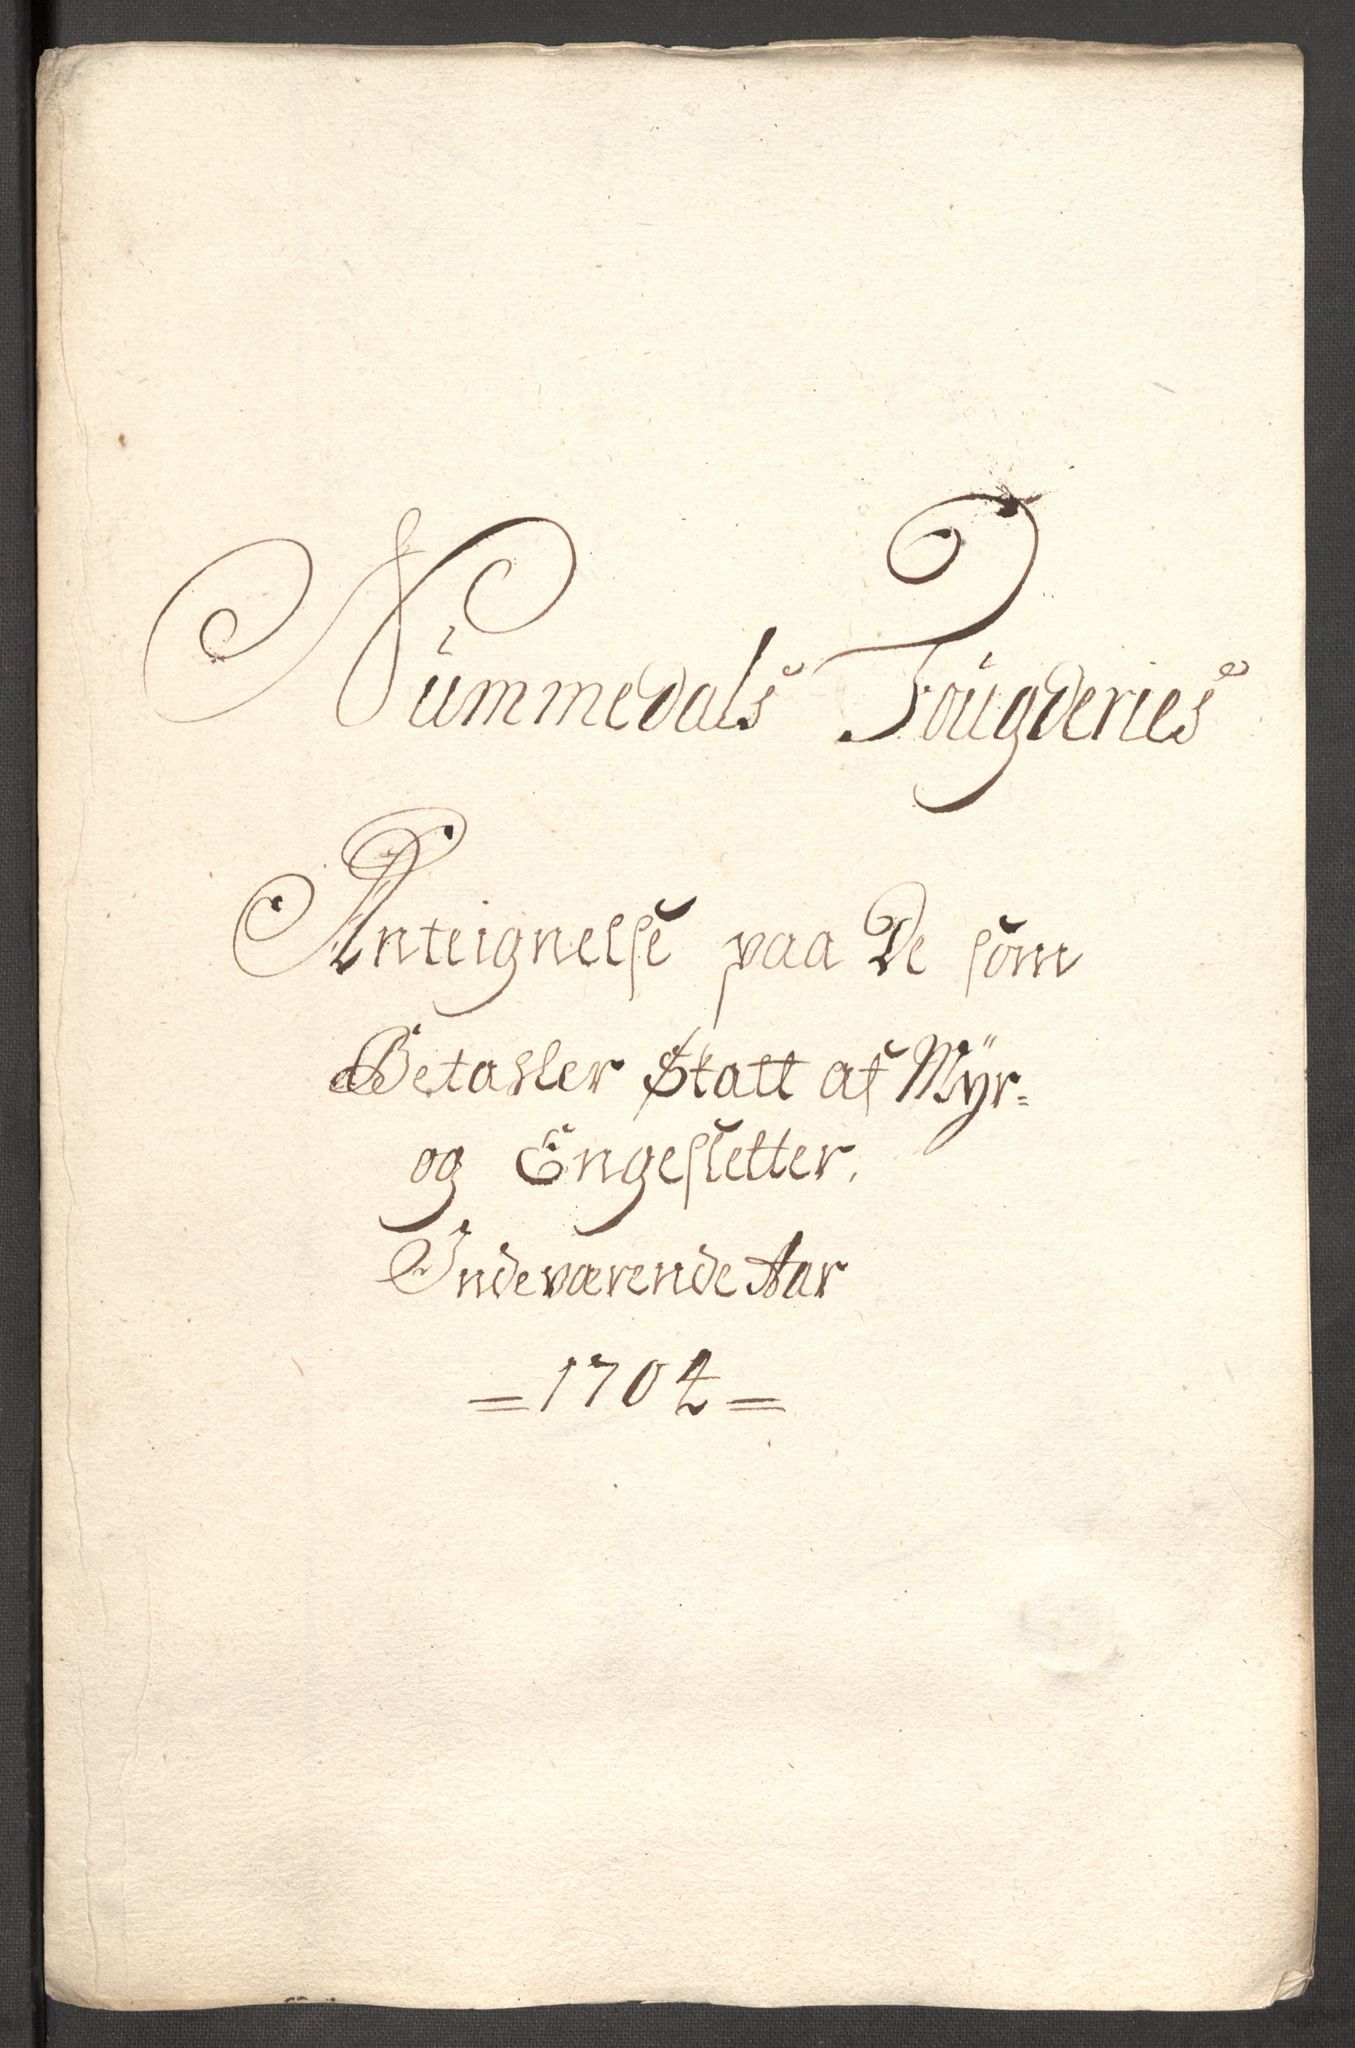 Nummedals Fougderies
Anteignelse paa De som
Betahler Skatt af Mÿr=
og Engesletter.
Indeværende Aar
= 1704 =